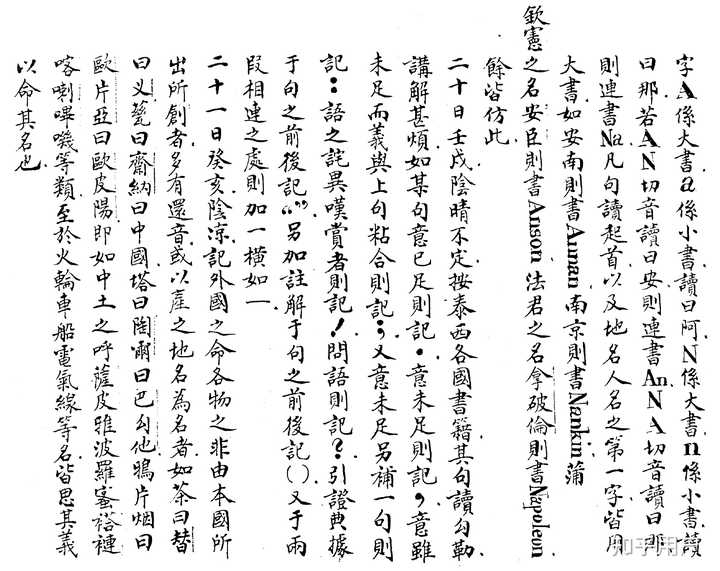 字A係大書a係小書讀曰阿N係大書n係小書讀
曰那若AN切音讀曰安則連書An.NA切音讀曰那
則連書Na凡句讀起首以及地名人名之第一字皆用
大書如安南則書Annan南京則書Nankin蒲
欽憲之名安臣則書Anson法君之名拿破倫則書Napoleon
餘皆仿此
二十日壬戌陰晴不定按泰西各國書籍其句讀勾勒
講解甚煩如某句意已足則記.意未足則記,意雖
未足而義與上句粘合則記;又意未足另補一句則
記:語之詫異嘆賞者則記!問語則記?引證典據
于句之前後記“”另加註解于句之前後記()又于兩
段相連之處則加一橫如—
二十一日癸亥陰涼記外國之命各物之非由本國所
出所創者多有還音或以產之地名為名者如茶曰替
曰义甕曰齋納曰中國塔曰陶爾曰巴勾他鴉片烟曰
歐片亞曰歐皮陽即如中土之呼薩皮雅波羅蜜褡褳
喀喇嗶嘰等類至於火輪車船電氣線等名皆思其義
以命其名也
知乎用